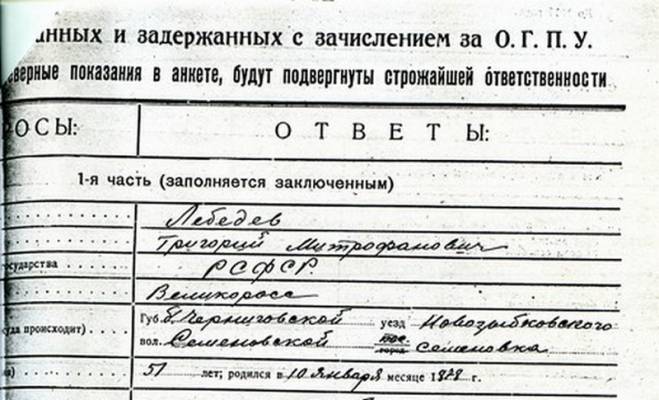 анных и задержанных с зачислением за О. Г. П. У.
верные показания в анкете, будут подвергнуты строжайшей ответственности
ОСЫ: ОТВЕТЫ:
1-я часть (заполняется заключенным)
Лебедев
Григорий Митрофанович
осударства РСФСР.
Великоросс
уда происходит) Губ. б. Черниговской уезд Новозыбковского
вол. Семеновской пос. Семеновка
а) 51 лет; родился в 10 января месяце 1878 г.